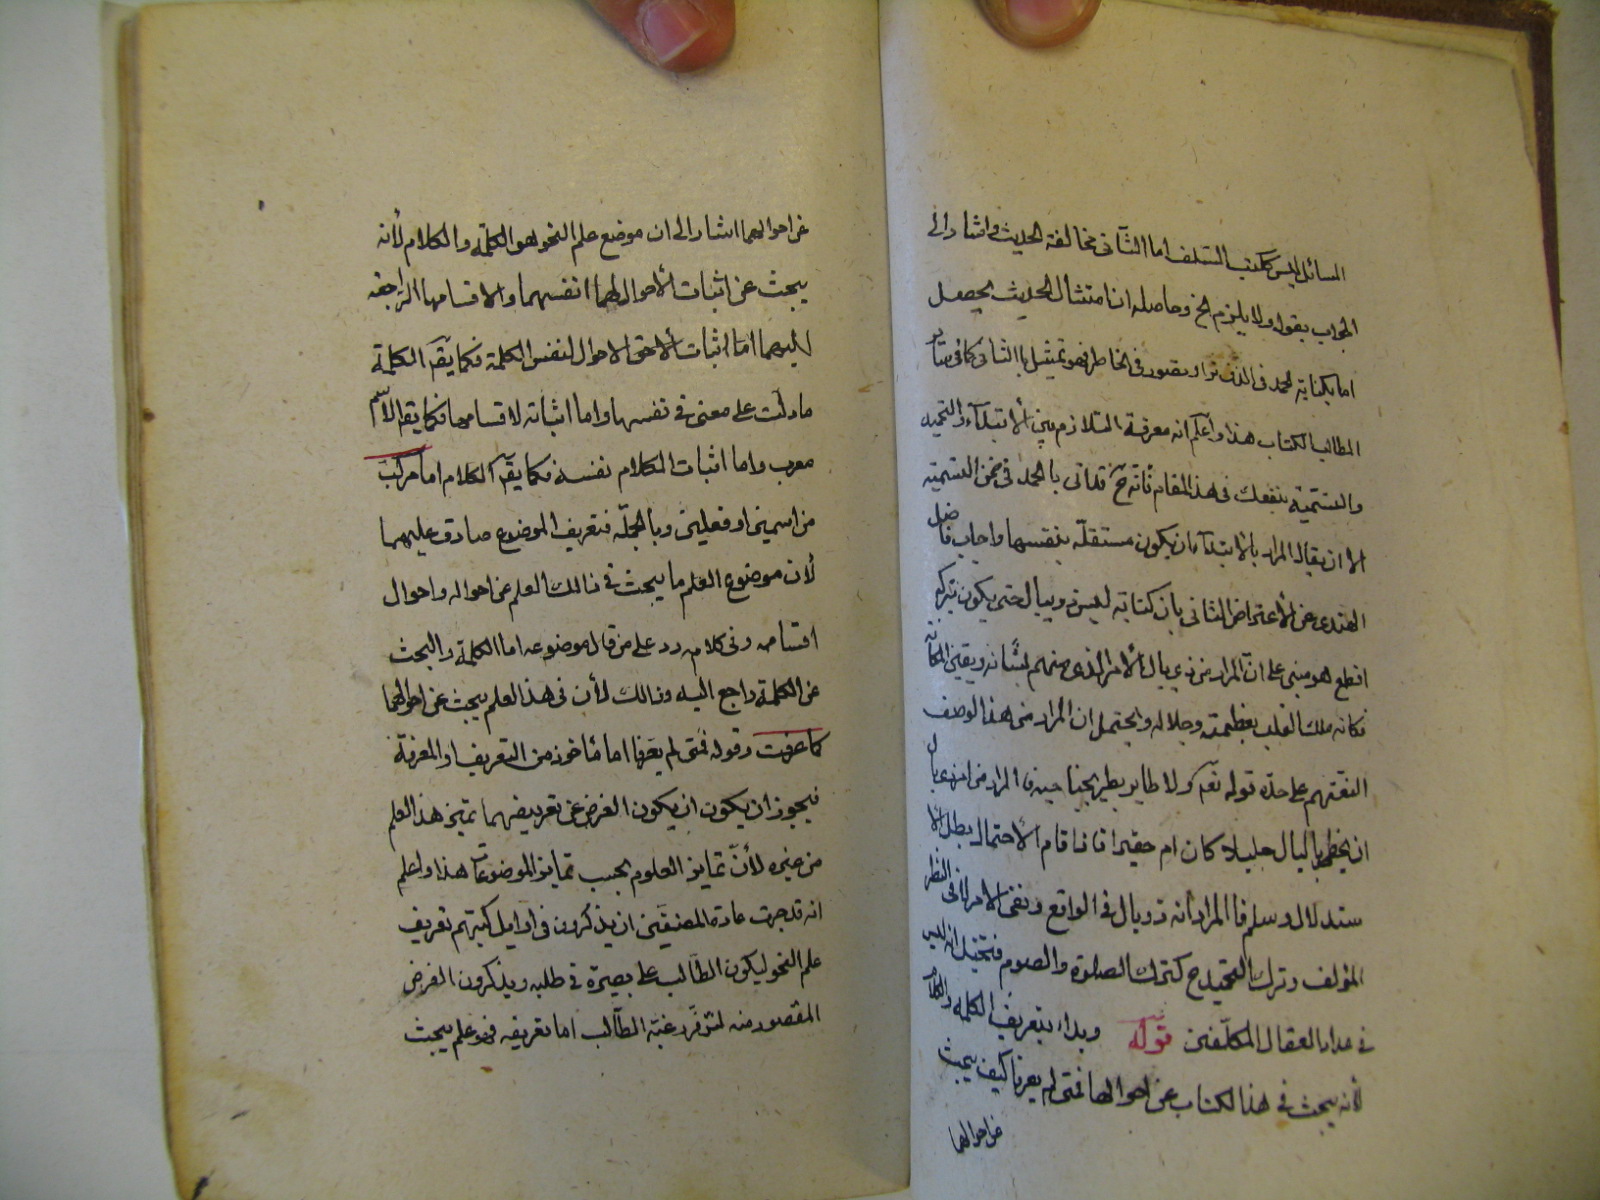 المسائل ليس ككتب السلف اما الثاني مخالفة الحديث واشار الى
الجواب بقوله ولا يلزم الخ وحاصله ان امتثال الحديث يحصل
اما بكتابة الحمد في او بتصور في الخاطر فهو تمثيل بالثاني كما في سائر
المطالب الكتاب هذا واعلم انه معرفة التلازم بين الابتداء والتحميد
والتسمية ينفعك في هذا المقام فانه ح قد اتى بالحمد في ضمن التسمية
الا ان يقال المراد بالابتداء ان يكون مستقلة بنفسها واجاب فاضل
الهندي عن الاعتراض الثاني بان كتابته ليس ذو بال حتى يكون تركه
اقطع هو مبني على ان المراد من ذي بال الامر الذي منهم بشانه ويقيني
فكانه ملك القلب بعظمته وجلاله ويحتمل ان المراد من هذا الوصف
على حدة قوله تعم ولا طاير يطير بجناحيه فالمراد من ذي بال
ان يخطر بالبال جليلا كان ام حقيرا فاذا قام الاحتمال بطل الا
ستدلال وسلم فالمراد انه ذو بال في الواقع وفي النظر
المؤلف وترك التحميد ح كترك الصلوة والصوم انه ليس
في عداد العقال المكلفين قوله وبداء بتعريف الكلمة والكلام
لأنه يبحث في هذا الكتاب عن احوالها فمتى لم يعرفا كيف يبحث
عن احوالهما
عن احوالهما اشار الى ان موضع علم النحو هو الكلمة والكلام لأنه
يبحث عن اثبات الأحوال لهما انفسهما والاقسامها الراجعة
اليهما اما اثبات الاحوال لنفس الكلمة فكما يقم الكلمة
ما دلت على معنى في نفسها واما اثباته لاقسامها فكما يقم الاسم
معرب واما اثبات الكلام نفسه فكما يقم الكلام اما مركب
من اسمين او فعلين وبالجملة فتعريف الموضوع صادق عليهما
لأن موضوع العلم ما يبحث في ذالك العلم عن احواله واحوال
اقسامه وفي كلامه رد على من قال موضوعه اما الكلمة والبحث
عن الكلمة راجع اليه وذالك لأن في هذا العلم يبحث عن احوالهما
كما عرفت وقوله فمتى لم يعرفا اما مأخوذ من التعريف او المعرفة
فيجوز ان يكون ان يكون الغرض عن تعريفهما تميز هذا العلم
من غيره لأن تمايز العلوم بحسب تمايز الموضوعات هذا واعلم
انه قد جرت عادة المصنفين ان يذكرون في اوايل كتبهم تعريف
علم النحو ليكون الطالب على بصيرة في طلبه ويذكرون الغرض
المقصود منه لتوفر رغبة الطالب اما تعريفه فهو علم يبحث